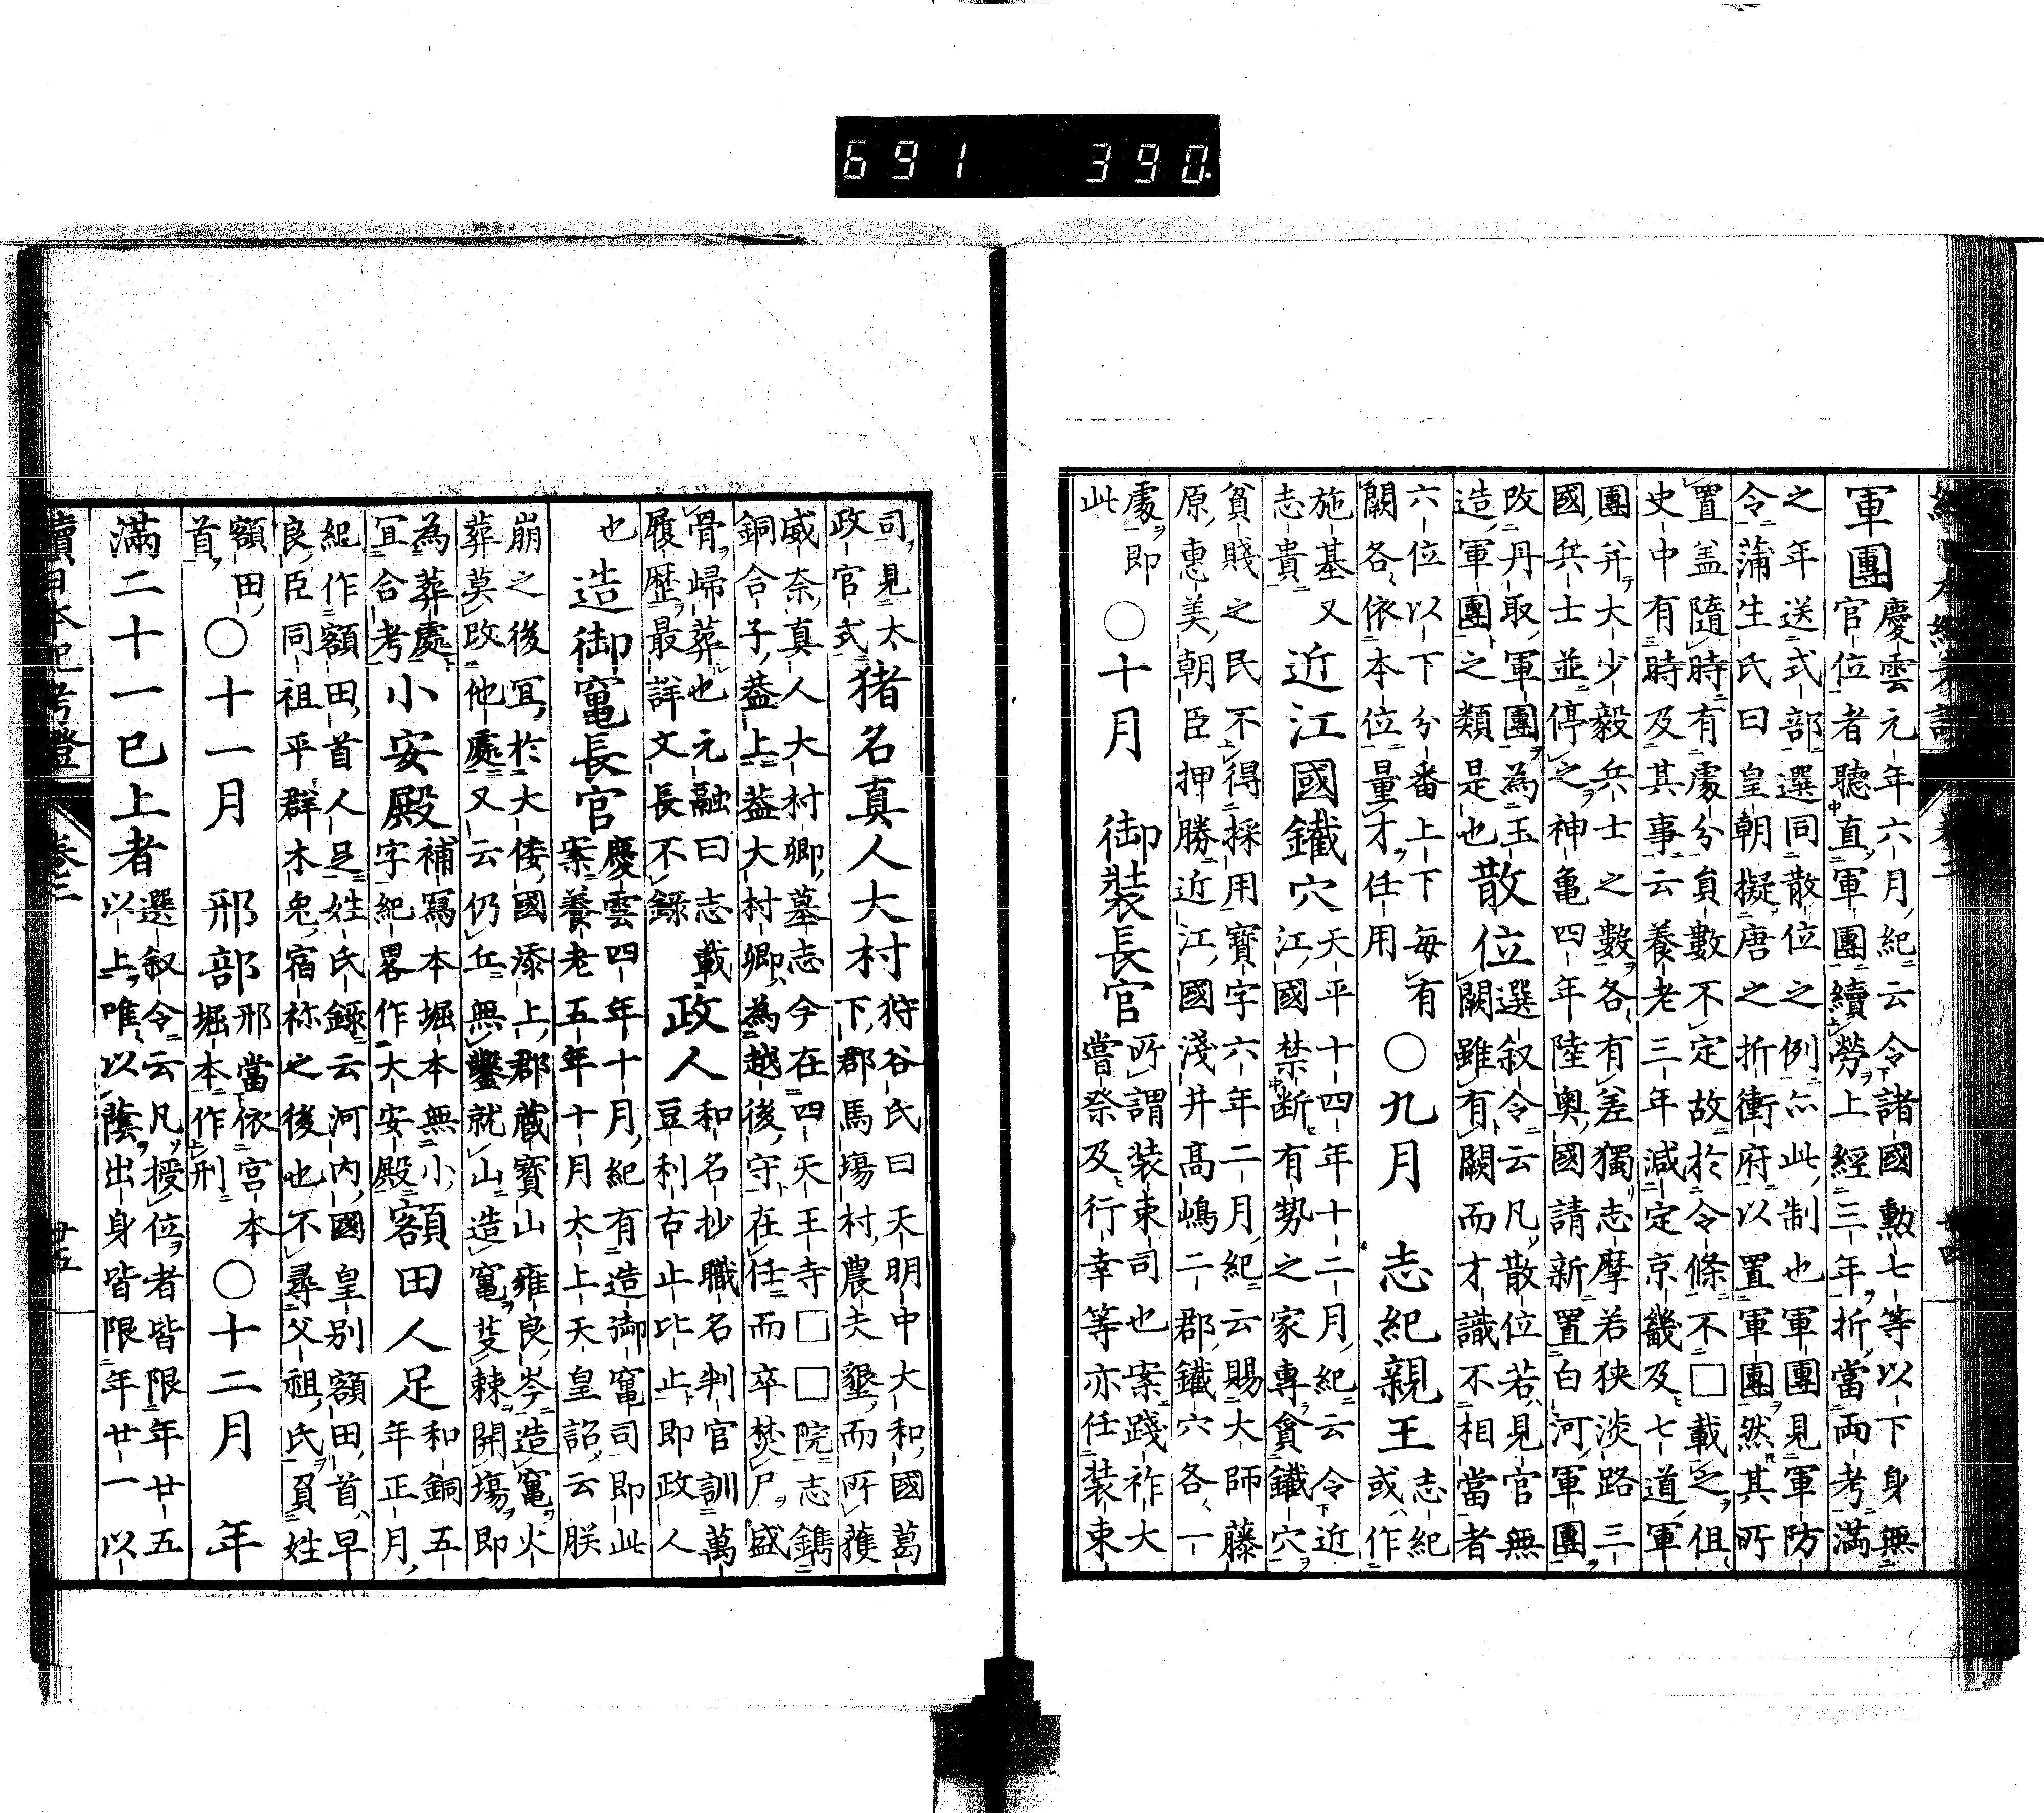 691 390.
軍團慶雲元年六月紀云令諸國勲七等以下身無
官位者聽直軍團續勞上經三年折當兩考滿
之年送式部選同散位之例亦此制也軍團見軍防
令蒲生氏曰皇朝擬唐之折衝府以置軍團然其所
置盖隨時有處分負數不定故於令條不□載之但
史中有時及其事云養老三年減定京畿及七道軍
團并大少毅兵士之數各有差獨志摩若狹淡路三
國兵士並停之神亀四年陸奥國請新置白河軍團
改丹取軍團為玉
造軍團之類是也
散位選叙令云凡散位若見官無
闕雖有闕而才識不相當者
六位以下分番上下每有
闕各依本位量才任用
○九月
志紀親王志紀
或作
施基又
志貴
近江國鐵穴天平十四年十二月紀云令近
江國禁断有勢之家專貪鐵穴
貧賤之民不得採用寳字六年二月紀云賜大師藤
原惠美朝臣押勝近江國淺井高嶋二郡鐵穴各一
處即
此
○十月
御裝長官所謂装束司也案踐祚大
嘗祭及行幸等亦任装束
司見太
政官式
猪名真人大村狩谷氏曰天明中大和國葛
下郡馬塲村農夫墾而所獲
威奈真人大村卿墓志今在四天王寺□□院志鐫
銅合子葢上葢大村卿為越後守在任而卒焚尸盛
骨歸葬也元融曰志載
履歴最詳文長不録
政人和名抄職名判官訓萬
豆利古止比止即政人
也
造御竃長官慶雲四年十月紀有造御竃司即此
案養老五年十月太上天皇詔云朕
崩之後冝於大倭國添上郡蔵寳山雍良岑造竃火
葬莫改他處又云仍丘無鑿就山造竃芟棘開塲即
為葬處
冝合考
小安殿補寫本堀本無小
字紀畧作大安殿
額田人足和銅五
年正月
紀作額田首人足姓氏録云河内國皇別額田首早
良臣同祖平群木兔宿祢之後也不尋父祖氏負姓
額田
首
○十一月
邢部邢當依宮本
堀本作刑
○十二月
年
滿二十一巳上者選叙令云凡授位者皆限年廿五
以上唯以蔭出身皆限年廿一以
續日本紀考證
卷三
廿五